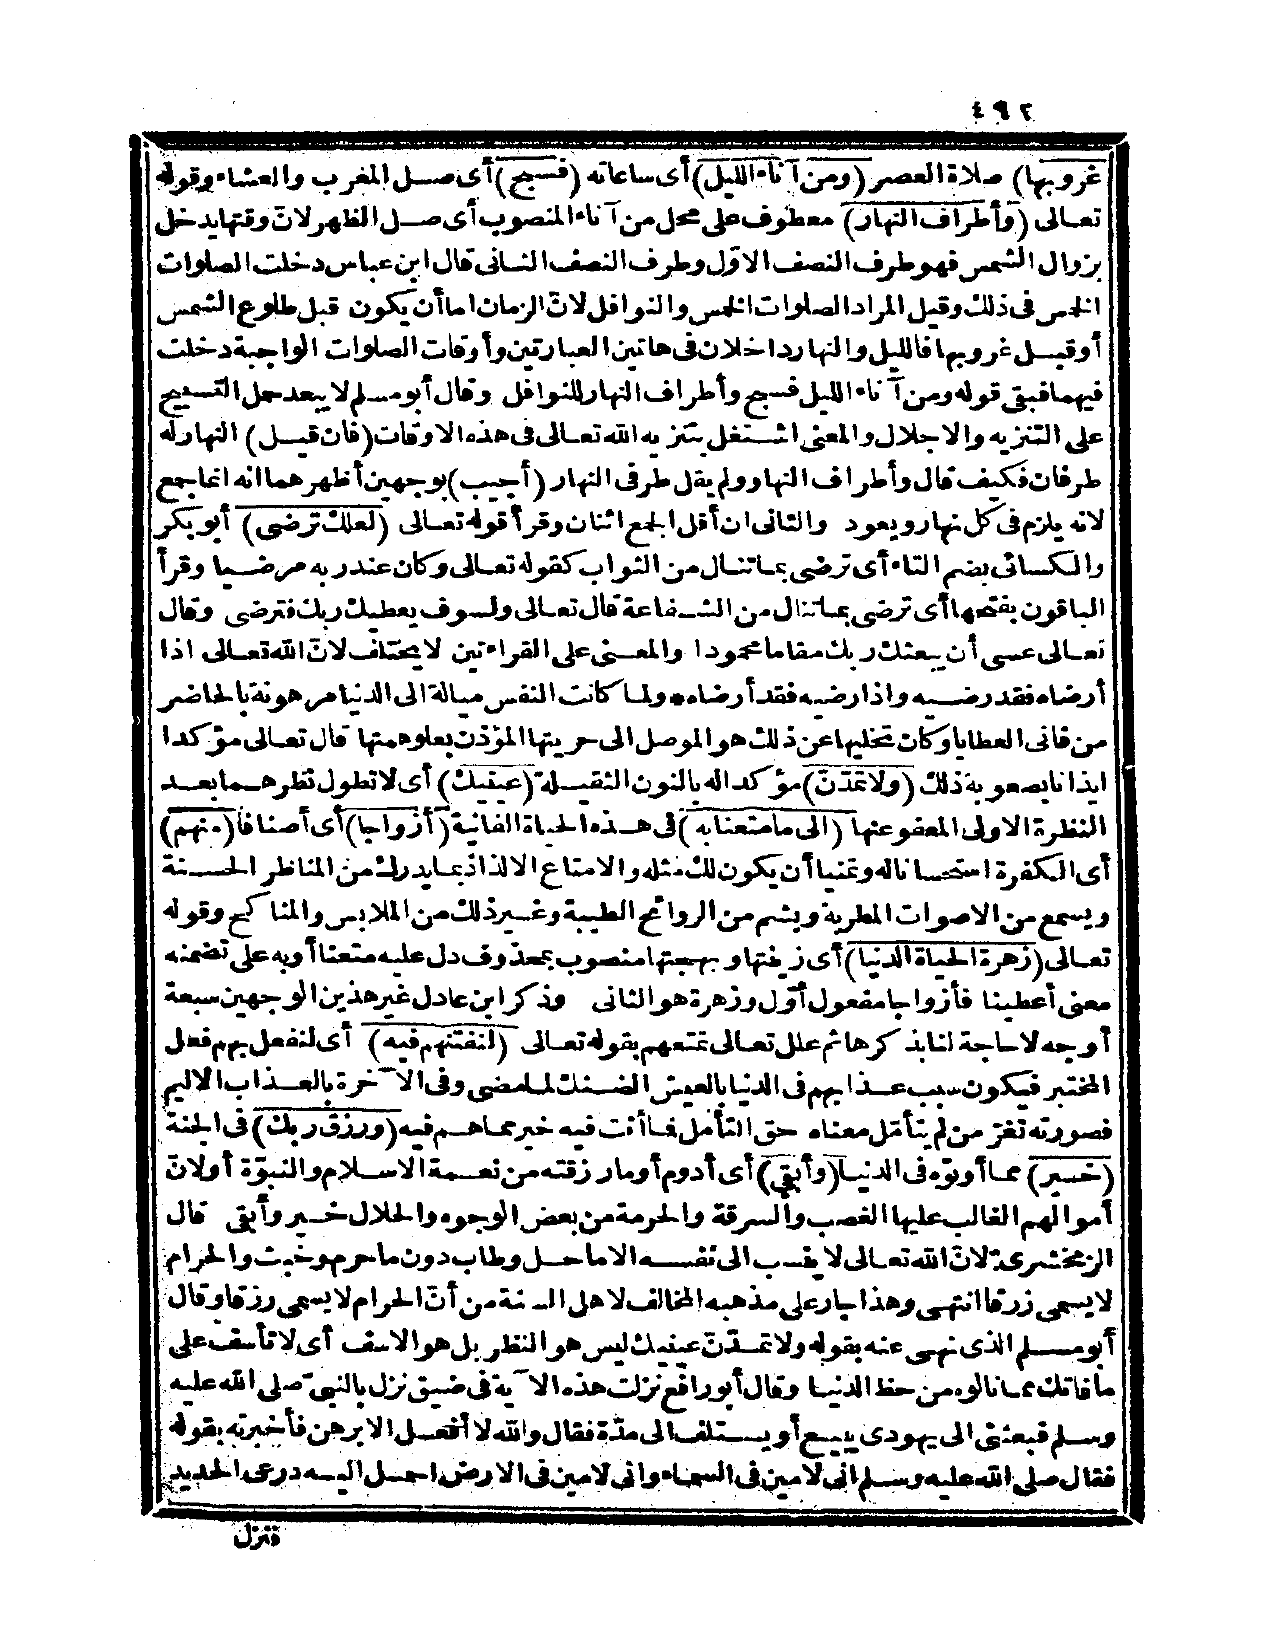 ٤٩٢
غروبها) صلاة العصر (ومن آناء الليل) أى ساعاته (فسبح) أى صل المغرب والعشاء وقوله
تعالى (وأطراف النهار) معطوف على محل من آناء المنصوب أى صل الظهر لان وقتها يدخل
بزوال الشمس فهو طرف النصف الاوّل وطرف النصف الثانى قال ابن عباس دخلت الصلوات
الخمس فى ذلك وقيل المراد الصلوات الخمس والنوافل لانّ الزمان اما أن يكون قبل طلوع الشمس
أو قبل غروبها فالليل والنهار داخلان فى هاتين العبارتين وأوقات الصلوات الواجبة دخلت
فيهما فبقى قوله ومن آناء الليل فسبح وأطراف النهار للنوافل وقال أبو مسلم لا يبعد حمل التسبيح
على التنزيه والاجلال والمعنى اشتغل بتنزيه الله تعالى فى هذه الاوقات (فان قيل) النهار له
طرفان فكيف قال وأطراف النهار ولم يقل طرفى النهار (أجيب) بوجهين أظهرهما انه انما جمع
لانه يلزم فى كل نهار ويعود والثانى ان أقل الجمع اثنان وقرأ قوله تعالى (لعلك ترضى) أبو بكر
والكسائى بضم التاء أى ترضى بما تنال من الثواب كقوله تعالى وكان عند ربه مرضيا وقرأ
الباقون بفتحها أى ترضى بما تنال من الشفاعة قال تعالى ولسوف يعطيك ربك فترضى وقال
تعالى عسى أن يبعثك ربك مقاما محمودا والمعنى على القراءتين لا يختلف لانّ الله تعالى اذا
أرضاه فقد رضيه واذا رضيه فقد أرضاه * ولما كانت النفس ميالة الى الدنيا مرهونة بالحاضر
من فانى العطايا وكان تخليها عن ذلك هو الموصل الى حريتها المؤذن بعلو همتها قال تعالى مؤكدا
ايذانا بصعوبة ذلك (ولا تمدّنّ) مؤكدا له بالنون الثقيلة (عينيك) أى لا تطول نظرهما بعد
النظرة الاولى المعفو عنها (الى ما متعنا به) فى هذه الحياة الفانية (أزواجا) أى أصنافا (منهم)
أى الكفرة استحسانا له وتمنيا أن يكون لك مثله والامتاع الالذاذ بما يدرك من المناظر الحسنة
ويسمع من الاصوات المطربة ويشم من الروائح الطيبة وغير ذلك من الملابس والمناكح وقوله
تعالى (زهرة الحياة الدنيا) أى زينتها وبهجتها منصوب بمحذوف دل عليه متعنا أو به على تضمنه
معنى أعطينا فأزواجا مفعول أوّل وزهرة هو الثانى وذكر ابن عادل غير هذين الوجهين سبعة
أوجه لا حاجة لنا بذكرها ثم علل تعالى تمتعهم بقوله تعالى (لنفتنهم فيه) أى لنفعل بهم فعل
المختبر فيكون سبب عذابهم فى الدنيا بالعيش الضنك لما مضى وفى الآخرة بالعذاب الاليم
فصورته تغرّ من لم يتأمّل معناه حق التأمل فما أنت فيه خير مما هم فيه (ورزق ربك) فى الجنة
(خير) مما أوتوه فى الدنيا (وأبقى) أى أدوم أو ما رزقته من نعمة الاسلام والنبوّة أو لانّ
أموالهم الغالب عليها الغصب والسرقة والحرمة من بعض الوجوه والحلال خير وأبقى قال
الزمخشرى لانّ الله تعالى لا ينسب الى نفسه الا ما حل وطاب دون ما حرم وخبث والحرام
لا يسمى رزقا انتهى وهذا جار على مذهبه المخالف لاهل السنة من أنّ الحرام لا يسمى رزقا وقال
أبو مسلم الذى نهى عنه بقوله ولا تمدّنّ عينيك ليس هو النظر بل هو الاسف أى لا تأسف على
ما فاتك مما نالوه من حظ الدنيا وقال أبو رافع نزلت هذه الآية فى ضيق نزل بالنبىّ صلى الله عليه
وسلم فبعثنى الى يهودى يبيع أو يستلف الى مدّة فقال والله لا أفعل الا برهن فأخبرته بقوله
فقال صلى الله عليه وسلم انى لامين فى السماء وانى لامين فى الارض احمل اليه درعى الحديد
فنزل